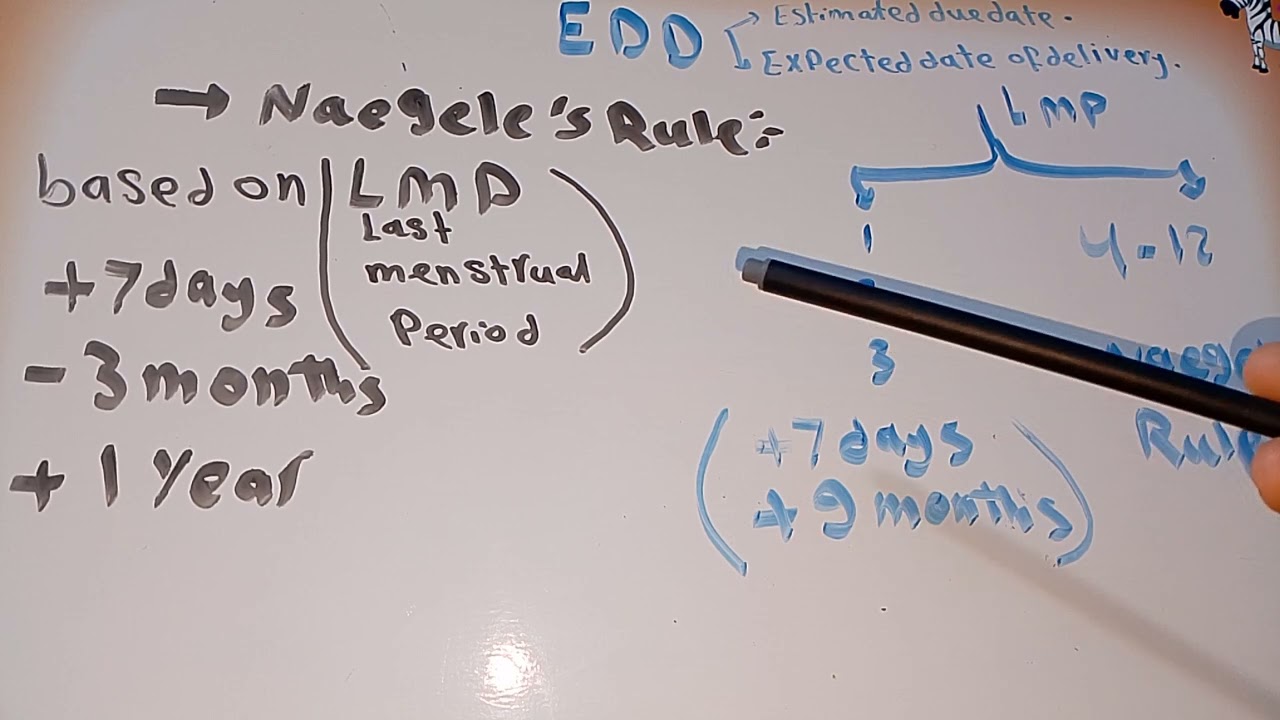 EDD
Estimated due date.
Expected date of delivery.
→ Naegele's Rule:-
based on (LMD
Last
menstrual
Period)
+7days
- 3 months
+ 1 Year
LMP
1
4-12
3
(+7 days
+ 9 months)
Rule